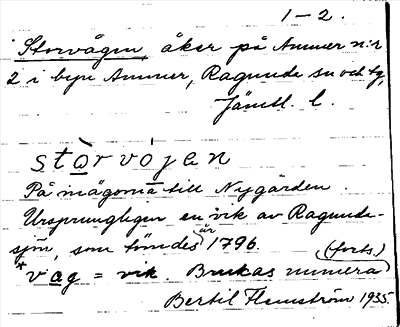 1-2.
Storvågen, åker på Ammer n:r
2 i byn Ammer, Ragunda sn och tg,
Jämtl. l.
stòrvójen
På mägorna till Nygården.
Ursprungligen en vik av Ragunda-
sjön, som tömdes år 1796.
(forts.)
*våg = vik. Brukas numera
Bertil Flemström 1935.